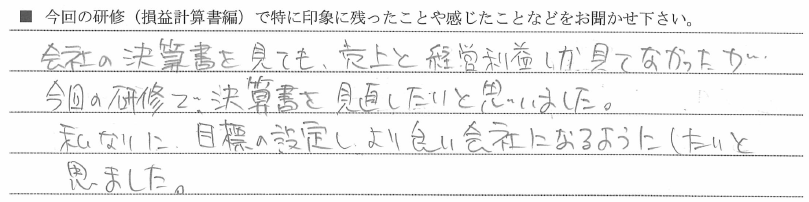 ■ 今回の研修（損益計算書編）で特に印象に残ったことや感じたことなどをお聞かせ下さい。
会社の決算書を見ても、売上と経営利益しか見てなかったが…
今回の研修で、決算書を見直したいと思いました。
私なりに、目標の設定し、より良い会社になるようにしたいと
思ました。